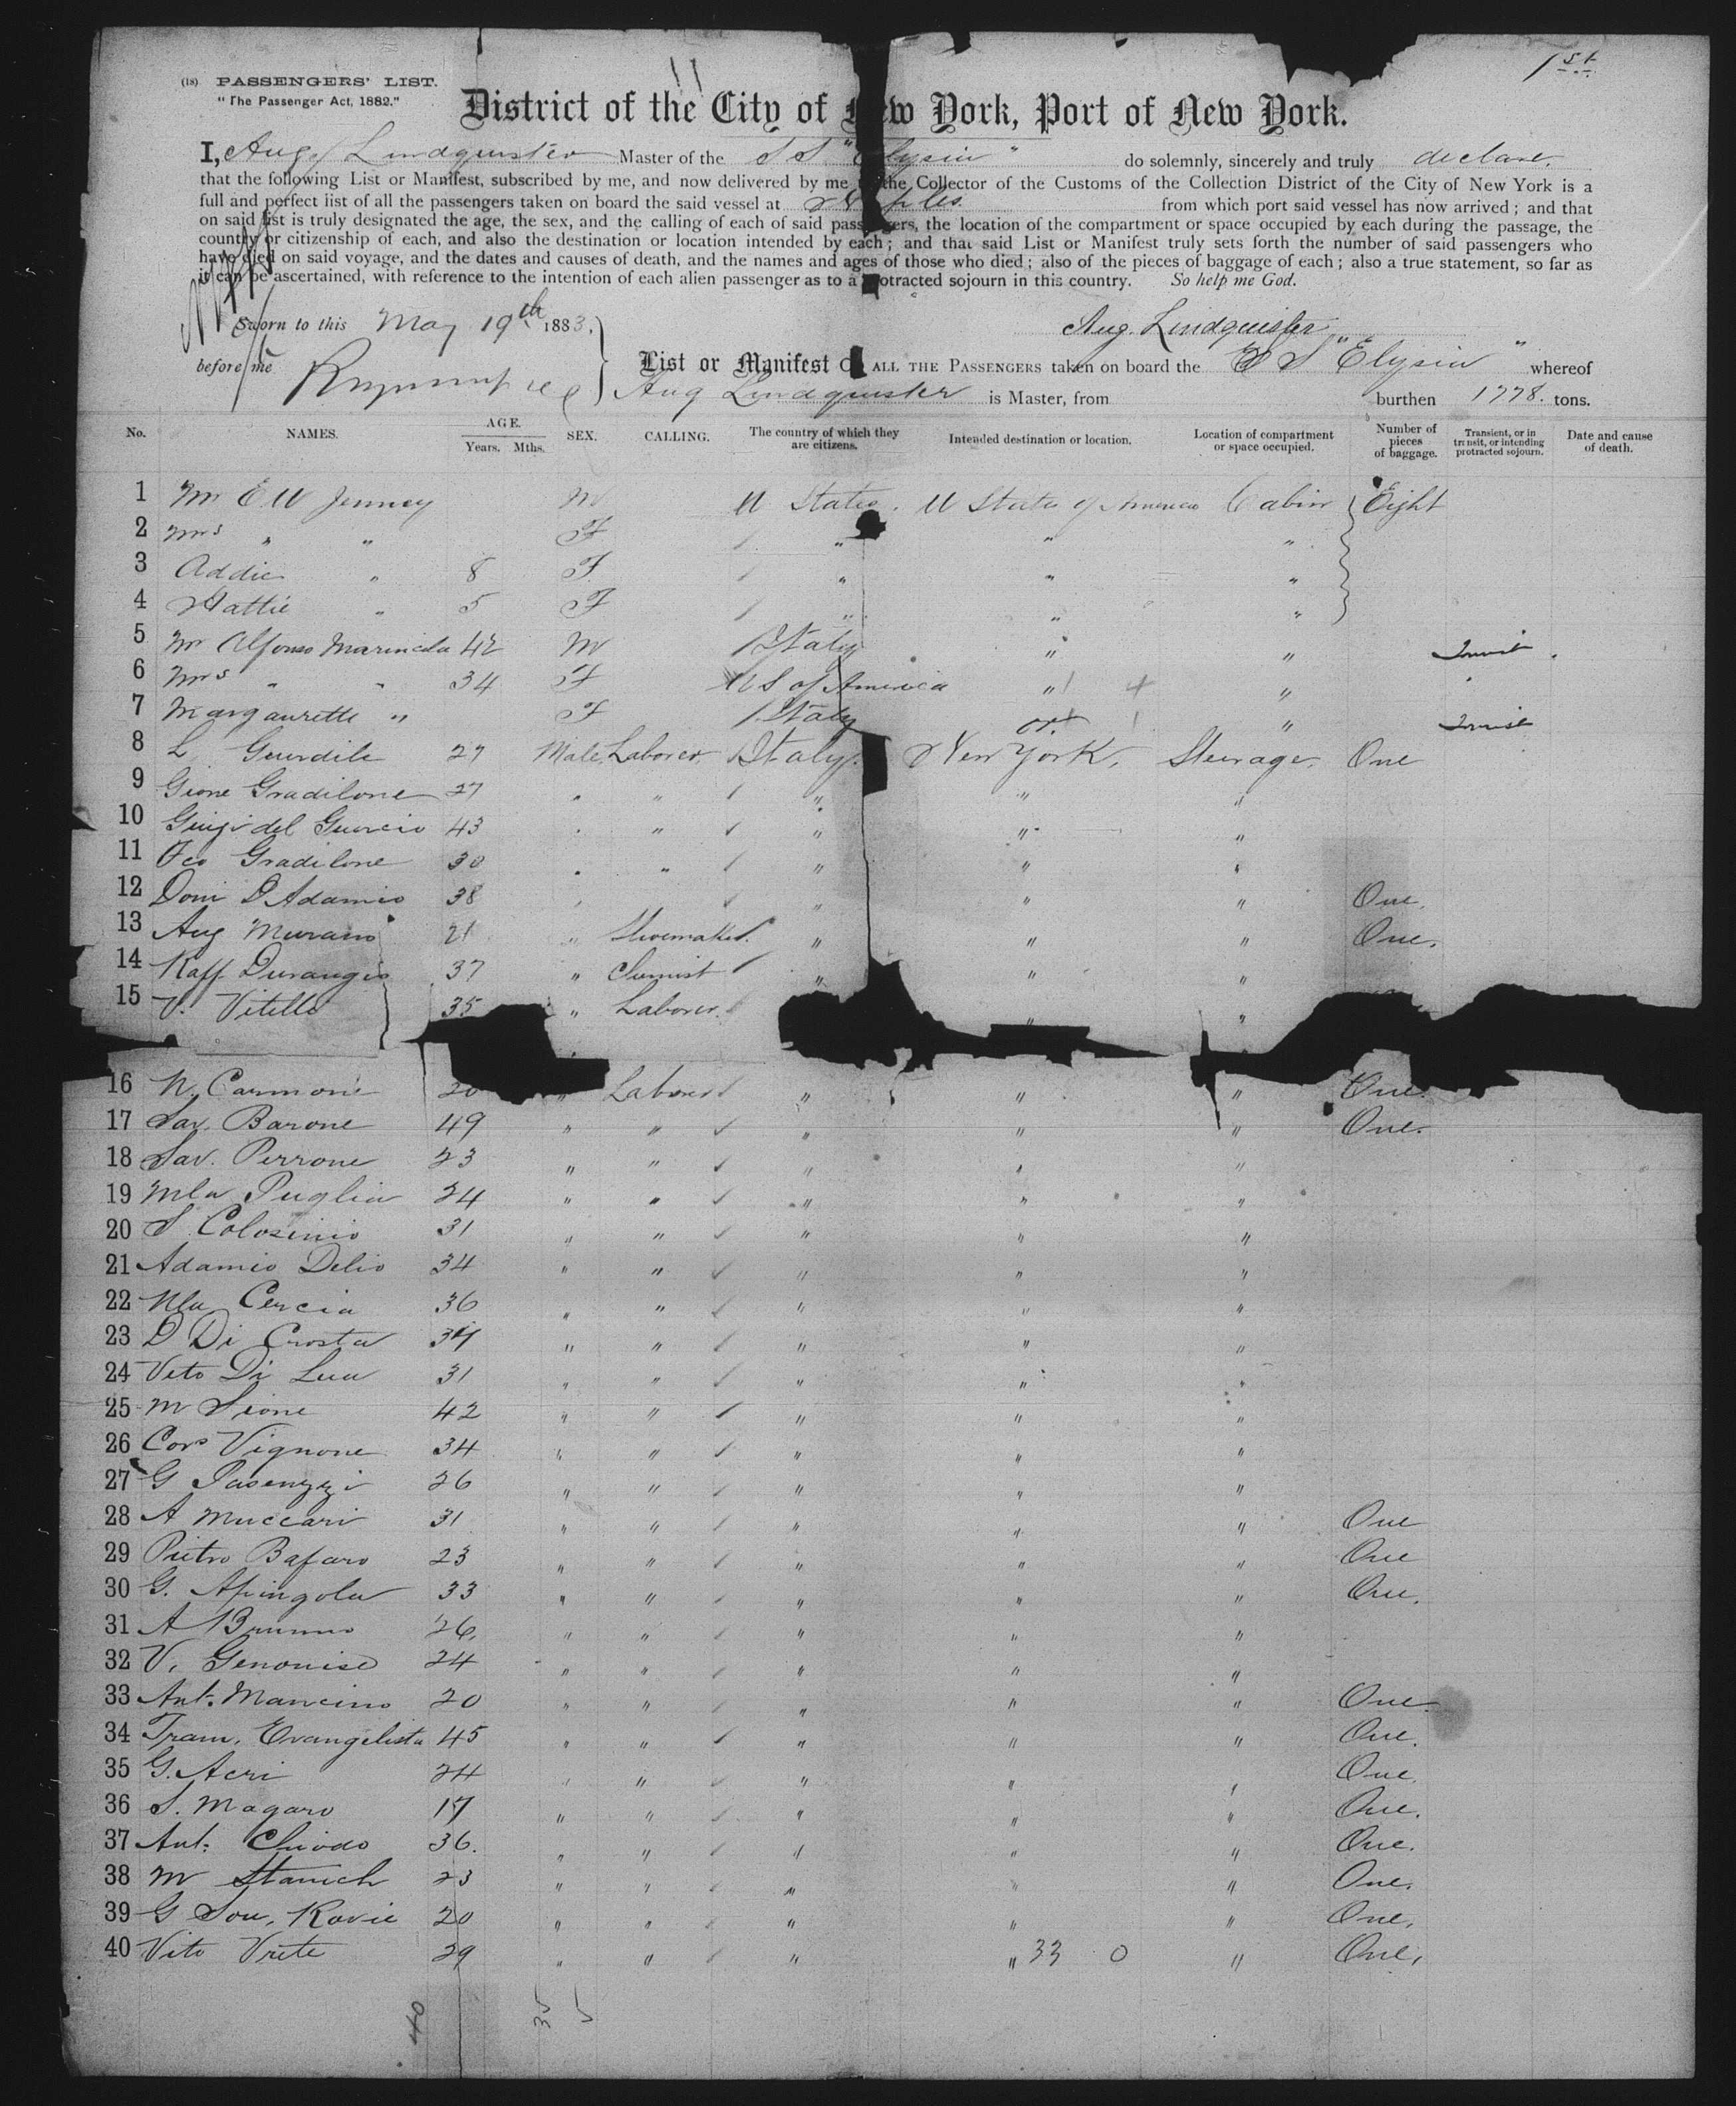 1st
(18) PASSENGERS' LIST.
"The Passenger Act, 1882."
District of the City of New York, Port of New York.
I, Aug. Lindquister Master of the S S "Elysia" do solemnly, sincerely and truly declare.
that the following List or Manifest, subscribed by me, and now delivered by me to the Collector of the Customs of the Collection District of the City of New York is a
full and perfect list of all the passengers taken on board the said vessel at Naples from which port said vessel has now arrived; and that
on said list is truly designated the age, the sex, and the calling of each of said passengers, the location of the compartment or space occupied by each during the passage, the
country or citizenship of each, and also the destination or location intended by each; and that said List or Manifest truly sets forth the number of said passengers who
have died on said voyage, and the dates and causes of death, and the names and ages of those who died; also of the pieces of baggage of each; also a true statement, so far as
it can be ascertained, with reference to the intention of each alien passenger as to a protracted sojourn in this country. So help me God.
Sworn to this May 19th 1883, Aug. Lindquister
before me List or Manifest OF ALL THE PASSENGERS taken on board the S S "Elysia" whereof
Aug Lindquister is Master, from burthen 1778. tons.
No. NAMES. AGE. Years. Mths. SEX. CALLING. The country of which they are citizens. Intended destination or location. Location of compartment or space occupied. Number of pieces of baggage. Transient, or in transit, or intending protracted sojourn. Date and cause of death.
1 Mr E W Jenney M U States. U States of America Cabin Eight
2 Mrs " " F " " "
3 Addie " 8 F " " "
4 Hattie " 5 F " " "
5 Mr Alfonso 42 M Italy " " Transit
6 Mrs " " 34 F U S of America " "
7 Margaurette " F Italy " Transit
8 L 27 Male Laborer Italy. New York. Steerage. One
9 Gione Gradilone 27 " " " " "
10 Guigi del Guercio 43 " " " " "
11 Fco Gradilone 30 " " " " "
12 Dom D Adamio 38 " " " " One.
13 Aug Murano 21 " Shoemaker. " " " One.
14 Raff Durangio 37 " Chemist " " "
15 V. Vitello 35 " Laborer. " "
16 N. Carmone 20 " Laborer " " " One.
17 Sav. Barone 49 " " " " " One.
18 Sav. Perrone 23 " " " " "
19 Mla Puglia 24 " " " " "
20 S Colosimo 31 " " " " "
21 Adamio Delio 34 " " " " "
22 Nla Cercia 36 " " " " "
23 D Di Crosta 34 " " " " "
24 Veto Di Lua 31 " " " " "
25 M Sione 42 " " " " "
26 Cors Vignone 34 " " " " "
27 G Pasenzzi 26 " " " " "
28 A Muccari 31 " " " " " One
29 Pietro Bafaro 23 " " " " " One
30 G. Apingola 33 " " " " " One.
31 A Brunno 26. " " " " "
32 V. Genouise 24 " " " " "
33 Ant. Mancino 20 " " " " " One
34 Fram. Evangelista 45 " " " " " One.
35 G. Acri 24 " " " " " One.
36 S. Magaro 17 " " " " " One.
37 Ant. Chiodo 36. " " " " " One.
38 M Stanich 23 " " " " " One.
39 G Sou. Rovie 20 " " " " " One.
40 Vito Vrete 29 " " " " 33 0 " One.
40 35